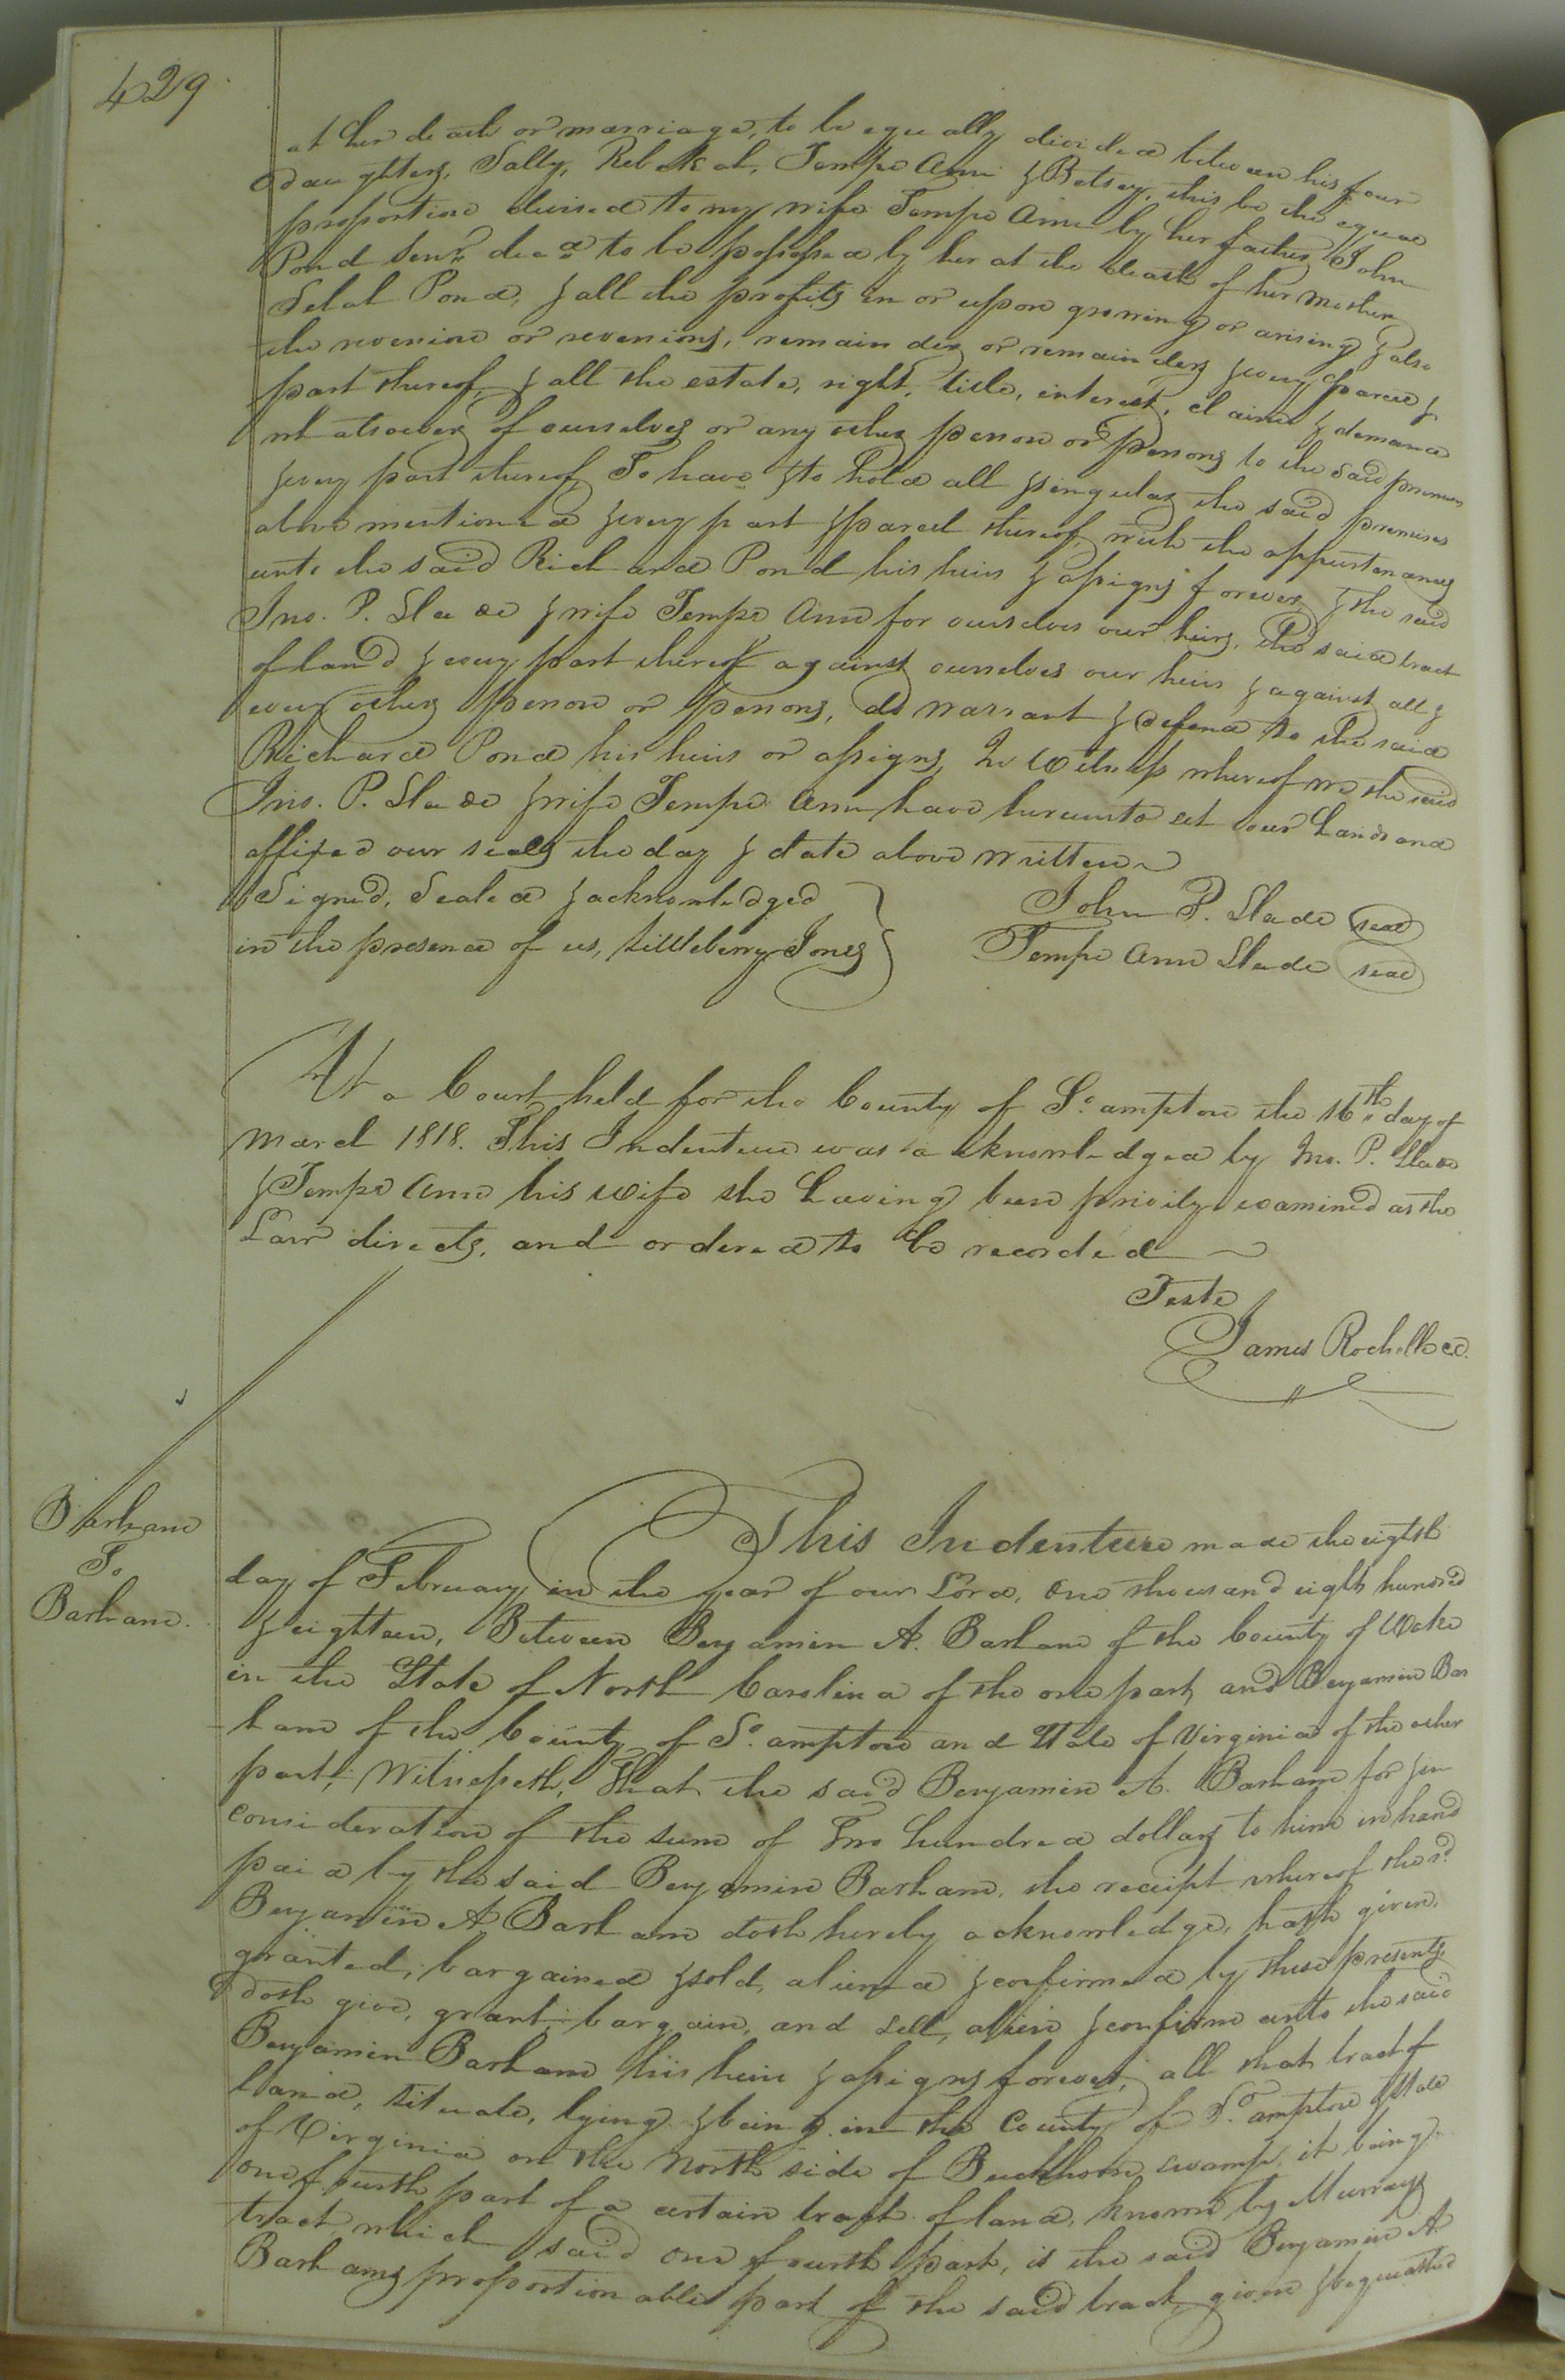 429
at her death or marriage, to be equally divided between his four
daughters, Sally, Rebekah, Tempe Ann & Betsey, this be the equal
proportion devised to my wife Tempe Ann by her father John
Pond Senr. decd. to be possessed by her at the death of her mother
Selah Pond, & all the profits in or upon growing or arising & also
the revenion or revenions, remainder or remainders & every parcel &
part thereof, & all the estate, right, title, interest, claim & demand
whatsoever of ourselves or any other person or persons to the said premises
& every part thereof, To have & to hold all & singular the said premises
above mentioned & every part & parcel thereof, with the appurtenances
unto the said Richard Pond his heirs & assigns forever, & the said
Jno. P. Slade & wife Tempe Ann for ourselves our heirs, the said tract
of land & every part thereof against ourselves our heirs & against all &
every other person or persons, do warrant & defend to the said
Richard Pond his heirs or assigns, In Witness whereof we the said
Jno. P. Slade & wife Tempe Ann have hereunto set our hands and
affixed our seals the day & date above written
Signed, Sealed & acknowledged
in the presence of us, Littleberry Jones
John P. Slade seal
Tempe Ann Slade seal
At a Court held for the County of So.ampton the 16th day of
March 1818. This Indenture was acknowledged by Jno. P. Slade
& Tempe Ann his wife she having been privily examined as the
Law directs, and ordered to be recorded
Teste
James Rochelle cc.
Barham
To
Barham.
This Indenture made the eigth
day of February in the year of our Lord, One thousand eigth hundred
& eigtteen, Between Benjamin A. Barham of the County of Wake
in the State of North Carolina of the one part and Benjamin Bar
-ham of the County of So.ampton and State of Virginia of the other
part; Witnesseth, That the said Benjamin A. Barham for & in
consideration of the sum of Two hundred dollars to him in hand
paid by the said Benjamin Barham, the receipt whereof the sd.
Benjamin A Barham doth hereby acknowledge, hath given,
granted, bargained & sold, aliened & confirmed by these presents,
doth give, grant, bargain, and sell, alien & confirm unto the said
Benjamin Barham his heirs & assigns forever, all that tract of
land, situate, lying & being in the County of So.ampton & State
of Virginia on the North side of Buckhorn swamp, it being
one fourth part of a certain tract of land, known by Murrays
tract, which said one fourth part, is the said Benjamin A.
Barhams proportionable part of the said tract, given & bequeathed